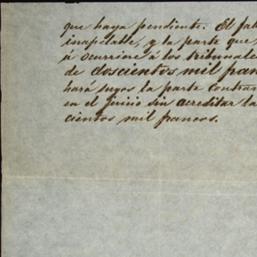 que haya pendiente. El fal
inapelable, y la parte que,
á ocurriere á los tribunale
de doscientos mil fran
hará suyos la parte contrar
en el juicio sin acreditar la
cientos mil francos.